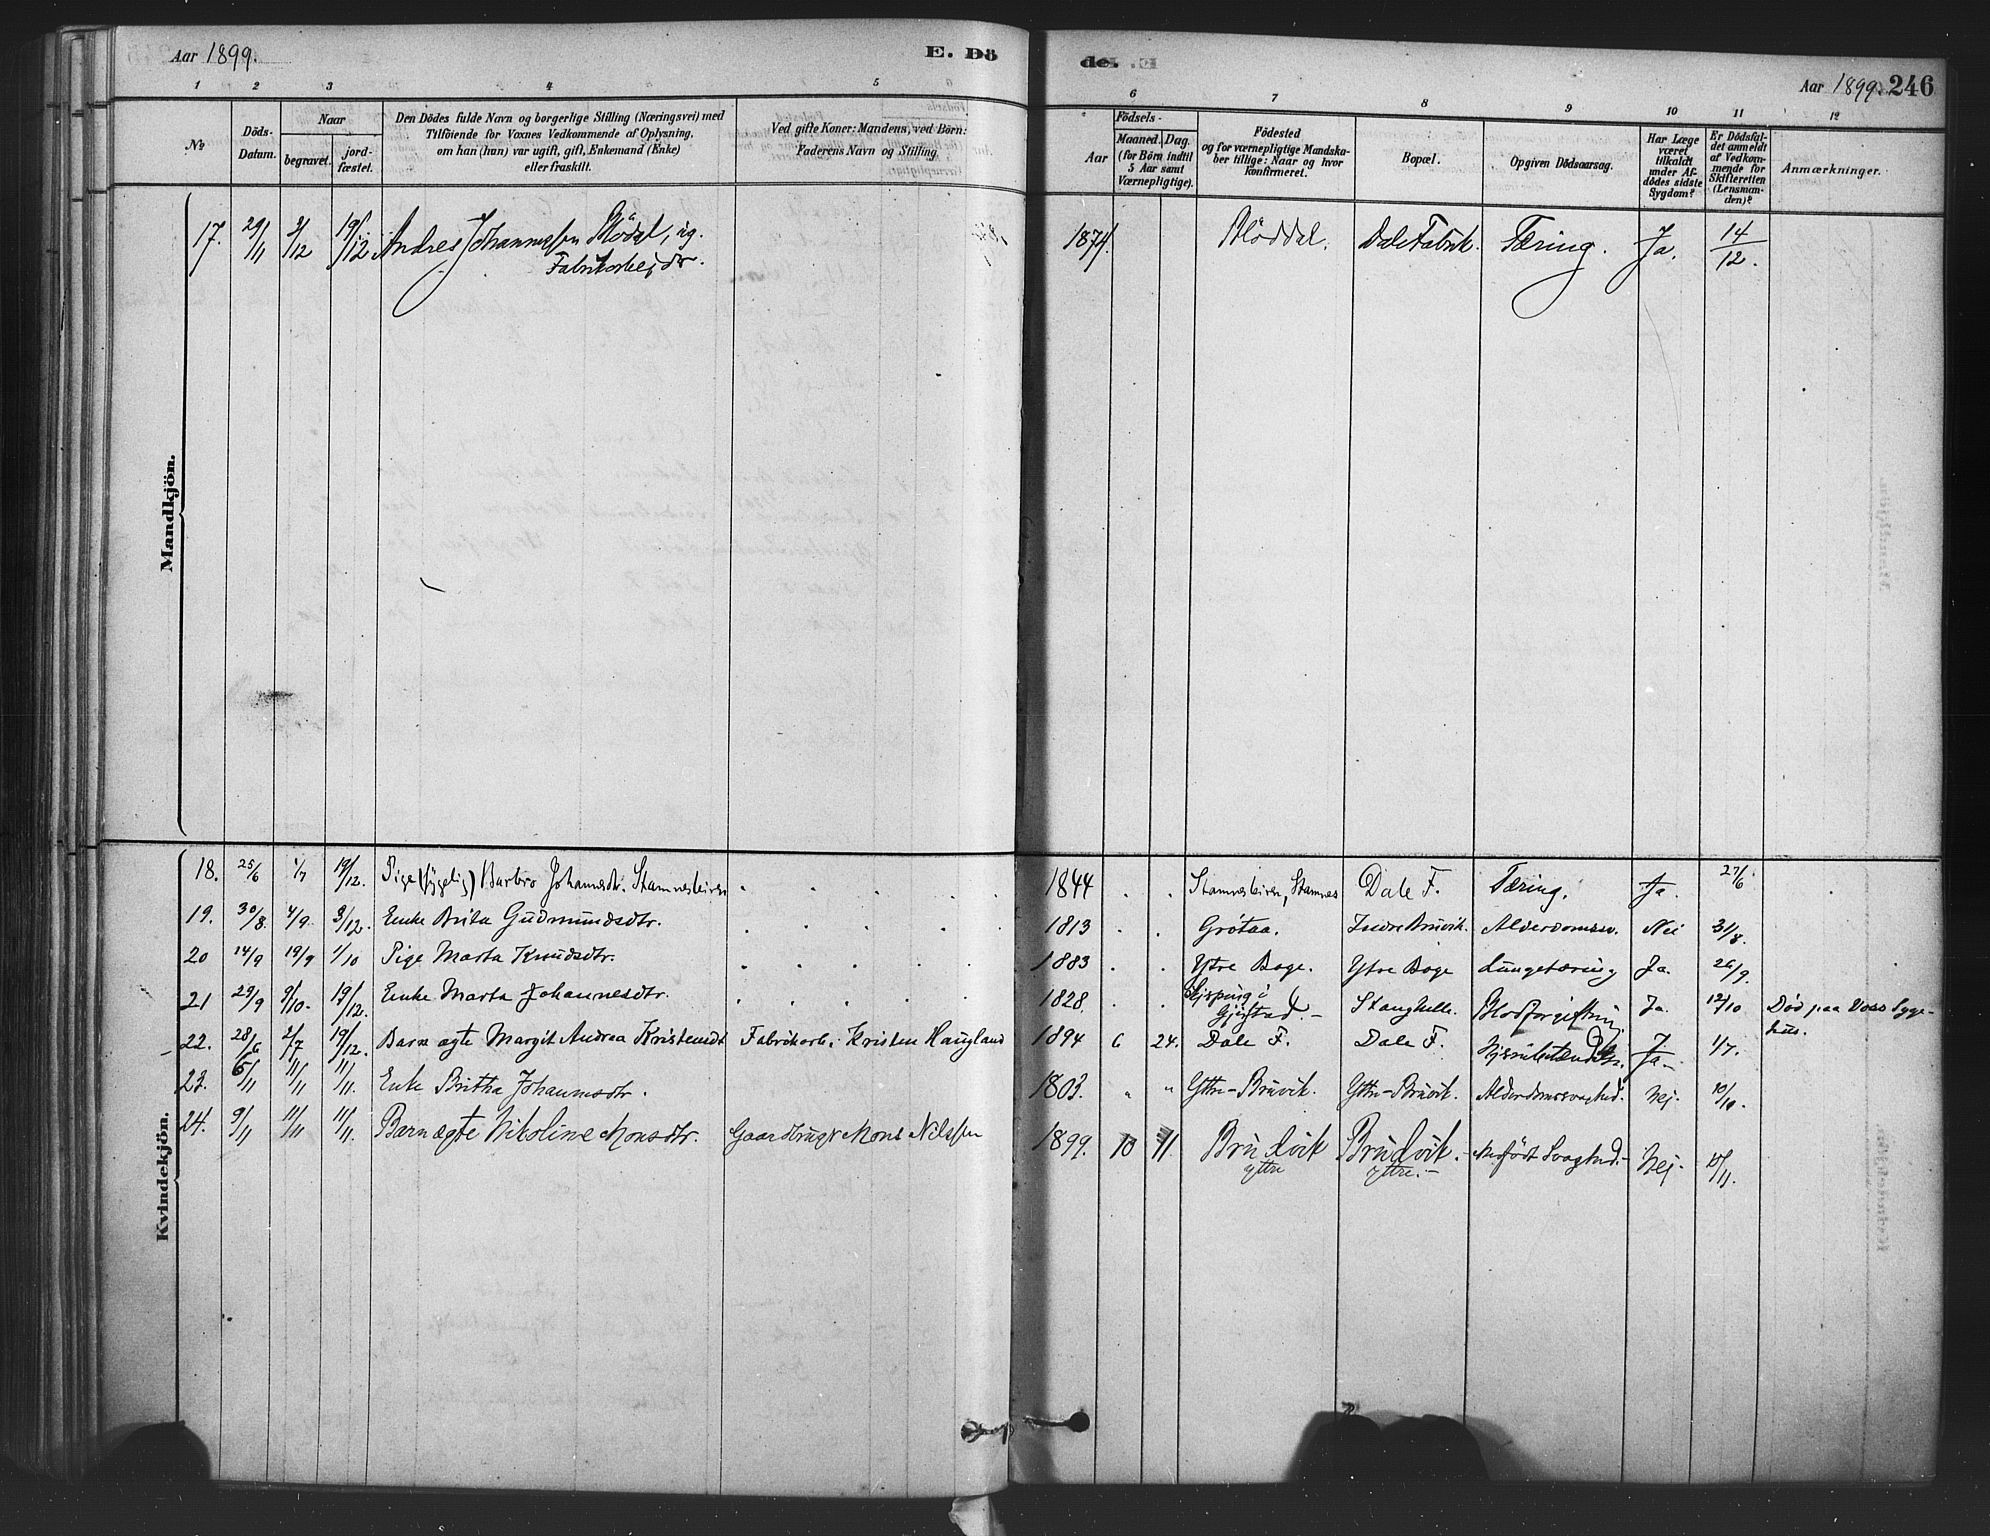 Aar 1899.
E. Dö
de.
Aar 1899.
246
1 2 3 4 5 6 7 8 9 10 11 12
No
Döds-Datum.
Naar
begravet.
jord-fæstet.
Den Dödes fulde Navn og borgerlige Stilling (Næringsvei) med
Tilföiende for Voxnes Vedkommende af Oplysning,
om han (hun) var ugift, gift, Enkemand (Enke)
eller fraskilt.
Ved gifte Koner: Mandens, ved Börn:
Faderens Navn og Stilling
Födsels-
Aar
Maaned. Dag.
(for Börn indtil
5 Aar samt
Værnepligtige).
Födested
og for værnepligtige Mandska-
ber tillige: Naar og hvor
konfirmeret.
Bopæl.
Opgiven Dödsaarsag.
Har Læge
været
tilkaldt
under Af-
dödes sidste
Sygdom?
Er Dödsfal-
det anmeldt
af Vedkom-
mende for
Skifteretten
(Lensman-
den)?
Anmærkninger.
Mandkjön.
17. 29/11 2/12 19/12 Andres Johannessen Blödal, ug. 1874. Bløddal. Dale Fabrik. Tæring. Ja. 14/12.
Fabrikarbejder.
Kvindekjön.
18. 25/6 1/7 19/12. Pige (sygelig) Barbro Johannesdtr. Stamnesleiren 1844 Stamnesleiren, Stamnes Dale F. Tæring. Ja. 27/6
19. 30/8. 4/9 3/12. Enke Brita Gudmundsdtr. 1813 Grøtaa. Indre Bruvik. Alderdomssv. Nei 31/8.
20 14/9 19/9 1/10 Pige Marta Knudsdtr. 1883 Ytre Boge. Ytre Boge Lungetæring Ja. 26/9.
21 29/9 9/10. 19/12. Enke Marta Johannesdtr. 1828. Stanghelle. Blodforgiftning Ja. 12/10 Død paa Voss Syge-
hus.
22. 28/6 2/7 19/12. Barn ægte Margit Andrea Kristensdt Fabrikarb. Kristen Haugland 1894 6 24. Dale F. Dale F. Ja 1/7.
23. 6/11 11/11 11/11. Enke Britha Johannesdtr. 1803. " " Yttre-Bruvik. Yttre-Bruvik. Alderdomssvaghed. Nej. 10/10.
24. 9/11 11/11 11/11. Barn ægte Nikoline Monsdtr. Gaardbrugr Mons Nilssen 1899. 10 11. Brudvik Brudvik. Medfödt Svaghed. Nej. 15/11.
yttre yttre.